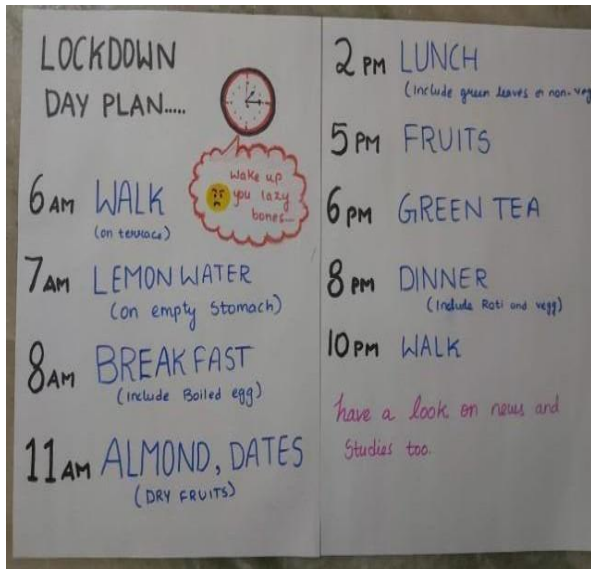 LOCKDOWN
DAY PLAN.....
Wake up
you lazy
bones...
6 AM WALK
(on terrace)
7AM LEMON WATER
(on empty Stomach)
8AM BREAKFAST
(include Boiled egg)
11 AM ALMOND, DATES
(DRY FRUITS)
2 PM LUNCH
(include green leaves or non-veg
5 PM FRUITS
6 PM GREEN TEA
8 PM DINNER
(include Roti and vegg)
10 PM WALK
have a look on news and
Studies too.